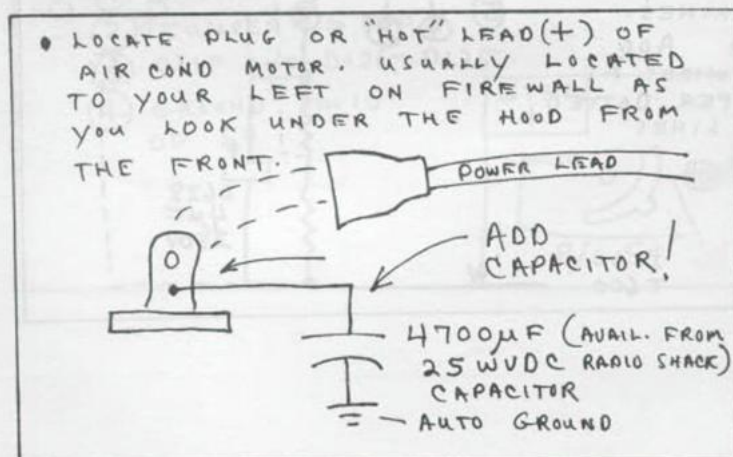 • LOCATE PLUG OR "HOT" LEAD (+) OF
AIR COND MOTOR. USUALLY LOCATED
TO YOUR LEFT ON FIREWALL AS
YOU LOOK UNDER THE HOOD FROM
THE FRONT.
POWER LEAD
ADD
CAPACITOR!
4700µF (AVAIL. FROM
25 WVDC RADIO SHACK)
CAPACITOR
AUTO GROUND